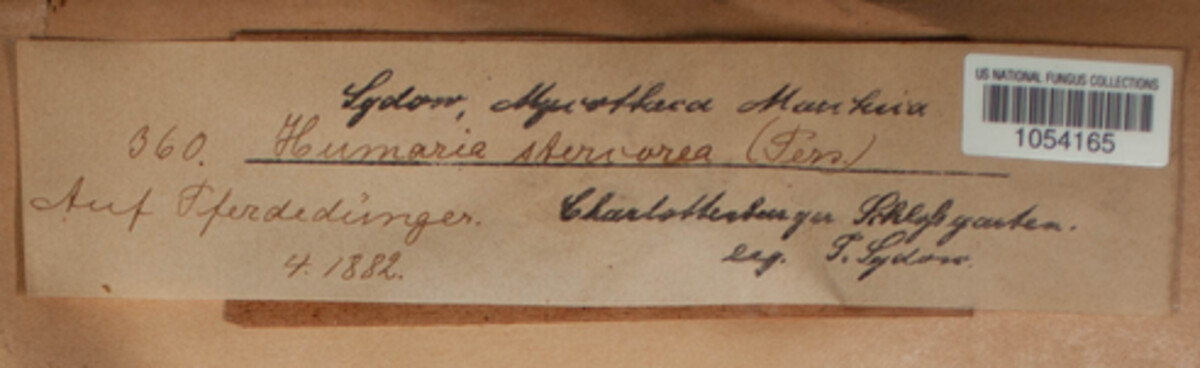 Sydow, Mycotheca Marchica
360. Humaria stercorea (Pers.)
Auf Pferdedünger. Charlottenburger Schloßgarten.
4. 1882. leg. P. Sydow.
US NATIONAL FUNGUS COLLECTIONS
1054165